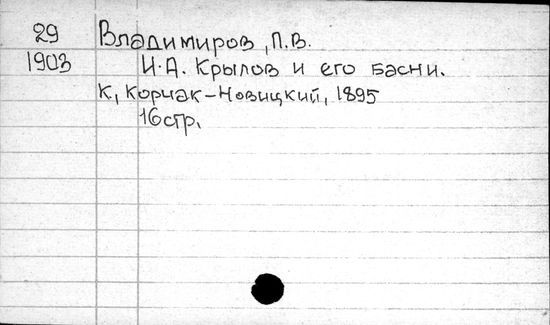 29 Владимиров, П.В.
1903 И.А. Крылов и его басни.
К, Корчак-Новицкий, 1895
16стр.